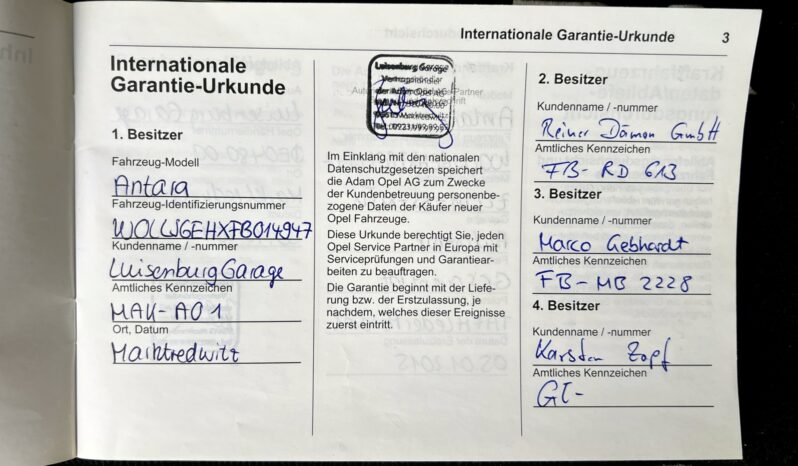 Internationale Garantie-Urkunde 3
Internationale
Garantie-Urkunde
1. Besitzer
Fahrzeug-Modell
Antara
Fahrzeug-Identifizierungsnummer
WOLLWGEHXFB014947
Kundenname / -nummer
Luisenburg Garage
Amtliches Kennzeichen
MAK-AO 1
Ort, Datum
Marktredwitz
Luisenburg Garage
Vertragshändler
der Adam Opel AG
Im Einklang mit den nationalen
Datenschutzgesetzen speichert
die Adam Opel AG zum Zwecke
der Kundenbetreuung personenbe-
zogene Daten der Käufer neuer
Opel Fahrzeuge.
Diese Urkunde berechtigt Sie, jeden
Opel Service Partner in Europa mit
Serviceprüfungen und Garantiear-
beiten zu beauftragen.
Die Garantie beginnt mit der Liefe-
rung bzw. der Erstzulassung, je
nachdem, welches dieser Ereignisse
zuerst eintritt.
2. Besitzer
Kundenname / -nummer
Reiner Damon GmbH
Amtliches Kennzeichen
FB- RD 613
3. Besitzer
Kundenname / -nummer
Marco Gebhardt
Amtliches Kennzeichen
FB- MB 2228
4. Besitzer
Kundenname / -nummer
Karsten Zopf
Amtliches Kennzeichen
GI-